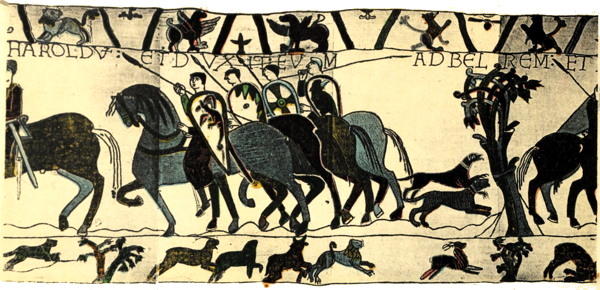 HAROLDV : ET DVXIT EVM AD BEL REM : ET